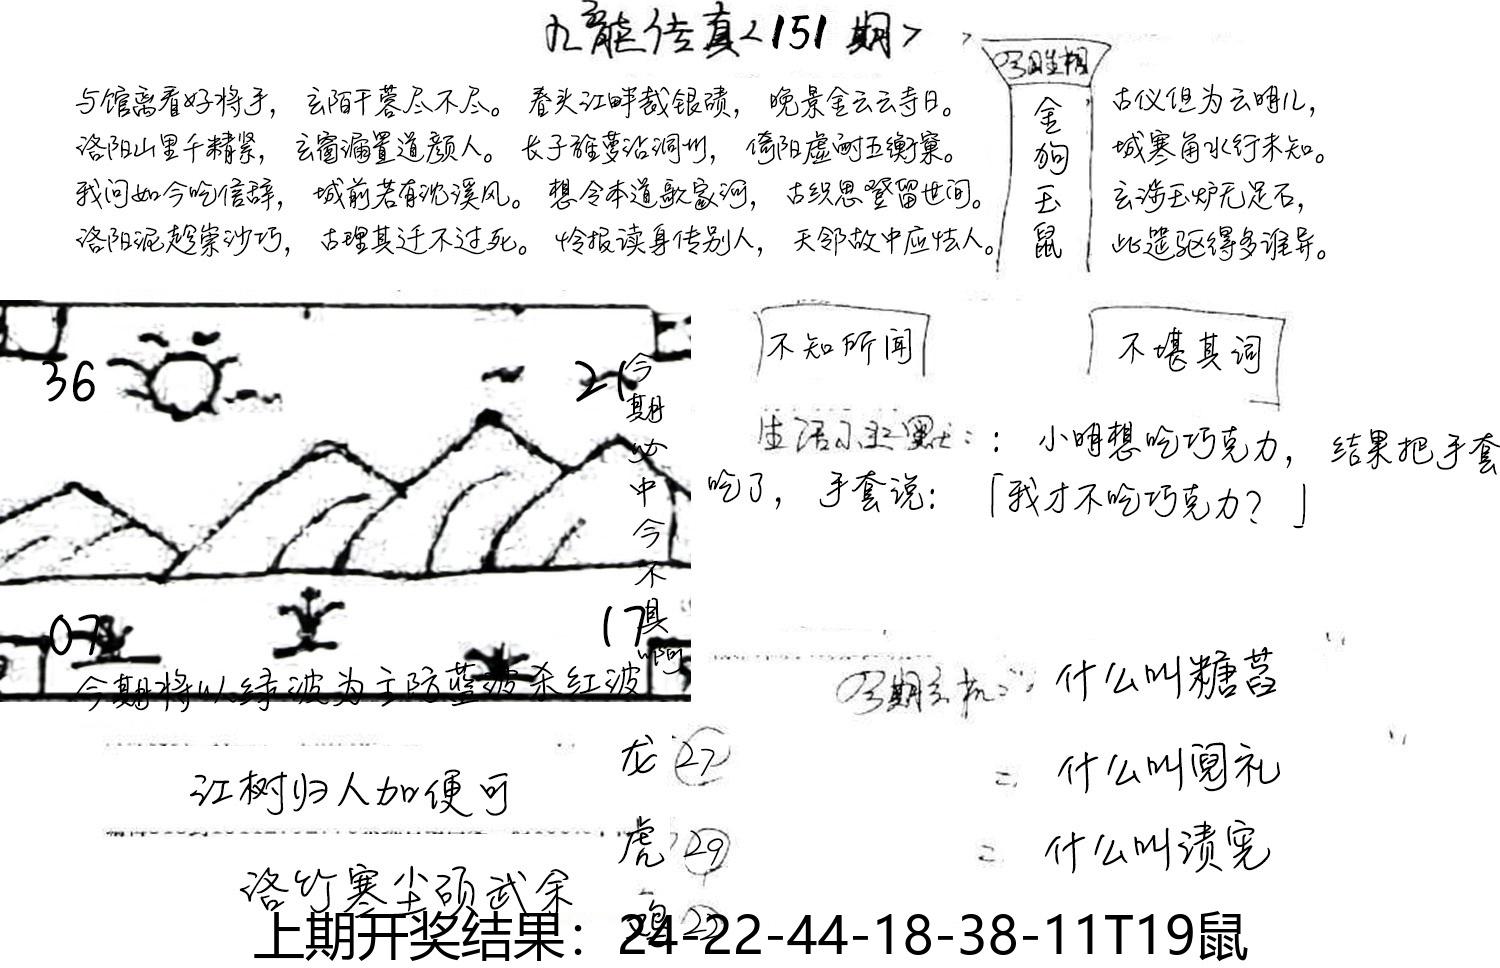 九龙传真<151期>
与馆离看好将手，玄陌干蓉尽不尽。春头江畔裁银碛，晚景金云云寺日。
洛阳山里千精紧，玄窗漏置道颜人。长子雅萝沾洞州，倚阳虚耐五衡窠。
我问如今吃信辞，城前若有沈溪风。想令本道歌家河，古织思登留世间。
洛阳泥趁崇沙巧，古理其迁不过死。怜报读身传别人，天邻故中应怯人。
金狗玉鼠
古仪但为云明儿，
城寒角水行未知。
玄涉玉炉无足石，
此造驱得多谁异。
36
21
07
17
今期必中今不具啊
今期将以绿波为主防蓝波杀红波
不知所闻
不堪其词
生活小幽默：：小明想吃巧克力，结果把手套
吃了，手套说：「我才不吃巧克力？」
什么叫糖
什么叫阅礼
什么叫渍宪
江树归人加便可
洛竹寒尘硕武余
龙 27
虎 29
上期开奖结果：24-22-44-18-38-11T19鼠